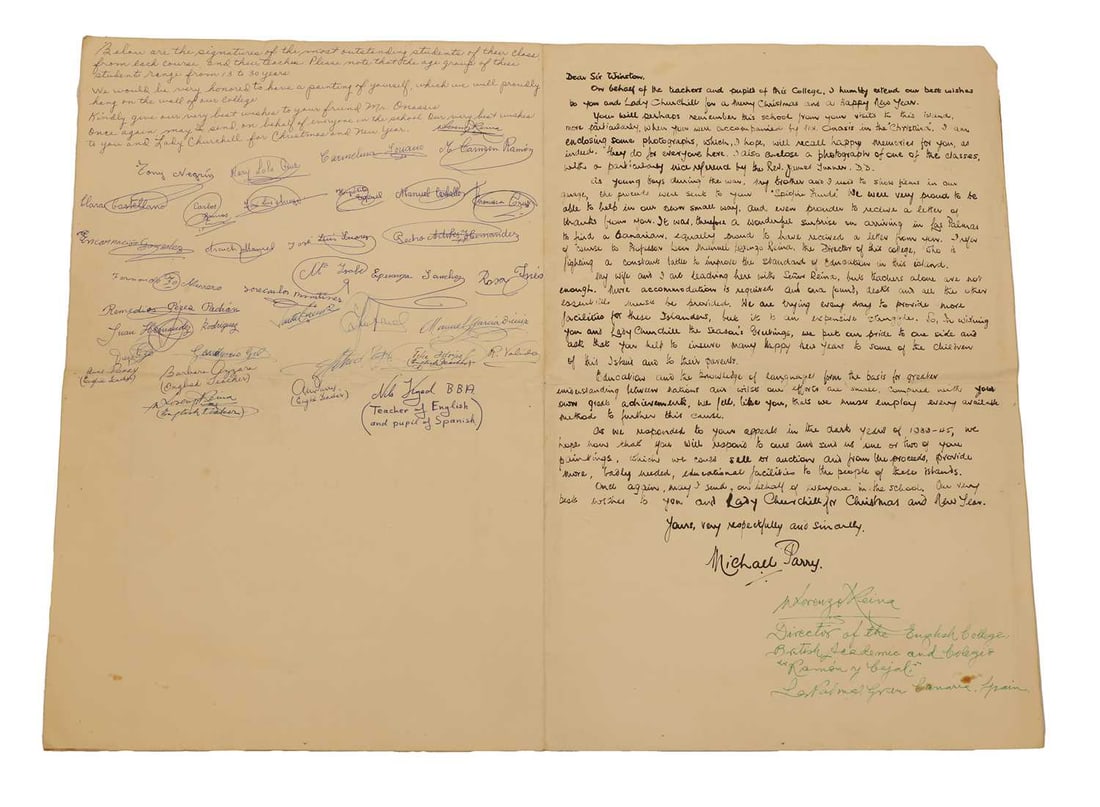 Below are the signatures of the most outstanding students of their class
from each course, and their teachers. Please note that the age group of these
students range from 13 to 30 years
We would be very honored to have a painting of yourself, which we will proudly
hang on the wall of our college
Kindly give our very best wishes to your friend Mr. Onassis
Once again, may I send, on behalf of everyone in the school our very best wishes
to you and Lady Churchill for Christmas and New Year.
Lorenzo Reina
Carmelina Mª Carmen Ramón
Tony Negrín Mary Lola Cruz
Clara Castellano Carlos Manuel
Encarnación Gonzalez Manuel José Luis Suarez Pedro Hernandez
Mª Isabel Esperanza Sanchez Rosa Inés
Fernando Marrero Josecarlos Martinez
Remedios Pérez Padrón
Juan Hernández Rodriguez Manuel Garcia
R. Valido
(English teacher)
Barbara
(English Teacher)
N Lorenzo Reina
(English teacher)
BBA
(Teacher of English
and pupil of Spanish)
Dear Sir Winston,
On behalf of the teachers and pupils of this College, I humbly extend our best wishes
to you and Lady Churchill for a Merry Christmas and a happy New Year.
You will perhaps remember this school from your visits to this island,
more particularly, when you were accompanied by Mr Onasis in the "Christina". I am
enclosing some photographs, which, I hope, will recall happy memories for you, as
indeed, they do for everyone here. I also enclose a photograph of one of the classes,
with a particularly nice reference by the Rev. James Turner. D.D.
As young boys during the war, my brother and I used to show films in our
garage, the proceeds were sent to your "Spitfire Fund". We were very proud to be
able to help in our own small way, and even prouder to receive a letter of
thanks from you. It was, therefore a wonderful surprise in arriving in Las Palmas
to find a Canarian, equally proud to have received a letter from you. I refer
of course to Professor Don Manuel Lorenzo Reina, the Director of this college, who is
fighting a constant battle to improve the standard of Education in this island.
My wife and I are teaching here with Señor Reina, but teachers alone are not
enough. More accommodation is required and class rooms, desks and all the other
essentials must be provided. We are trying every day to provide more
facilities for these Islanders, but it is an expensive struggle. So, in wishing
you and Lady Churchill the Season's Greetings, we put our pride to one side and
ask that you help to insure many happy New Years to some of the children
of this Island and to their parents.
Education and the knowledge of languages form the basis for greater
understanding between nations and whilst our efforts are small, compared with your
own great achievements, we feel, like you, that we must employ every available
method to further this cause.
As we responded to your appeals in the dark years of 1939-45, we
here hope that you will respond to ours and send us one or two of your
paintings, which we could sell or auction and from the proceeds, provide
more, badly needed, educational facilities to the people of these islands.
Once again, may I send, on behalf of everyone in the school, our very
best wishes to you and Lady Churchill for Christmas and New Year.
Yours, very respectfully and sincerely.
Michael Parry.
N Lorenzo Reina
Director of the English College
British Academic and Colegio
"Ramón y Cajal"
Las Palmas Gran Canaria. Spain